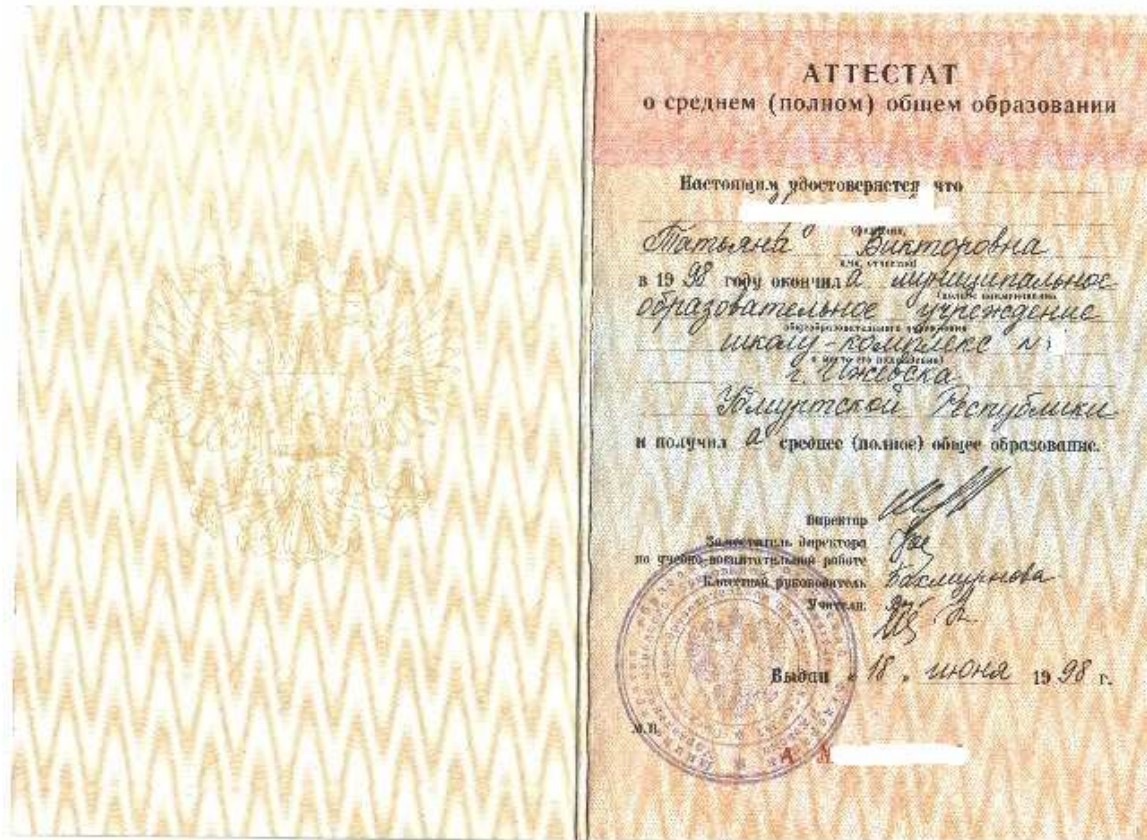 АТТЕСТАТ
о среднем (полном) общем образовании
Настоящим удостоверяется что
фамилия,
Татьяна Викторовна
имя, отчество
в 19 98 году окончил а муниципальное
(полное наименование
образовательное учреждение
общеобразовательного учреждения
школу-комплекс №
и место его нахождения)
г. Ижевска
Удмуртской Республики
и получил а среднее (полное) общее образование.
Директор
Заместитель директора
по учебно-воспитательной работе
Классный руководитель
Учителя:
Выдан « 18 » июня 19 98 г.
М.П.
А №